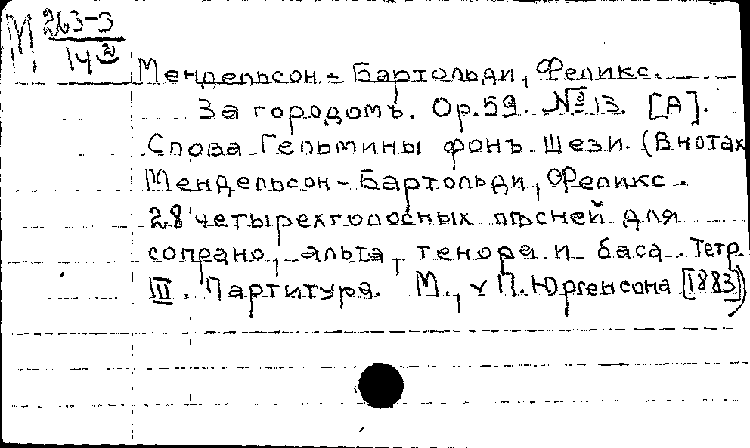 М 263-3
14²
Мендельсон-Бартольди, Феликс.
За городомъ. Ор. 59. № 13. [А].
Слова Гельмины фонъ Шези. (В нотах
Мендельсон-Бартольди, Феликс.
28 четырехголосных пѣсней для
сопрано, альта, тенора и баса. Тетр.
III. Партитура. М., у П. Юргенсона [1883])